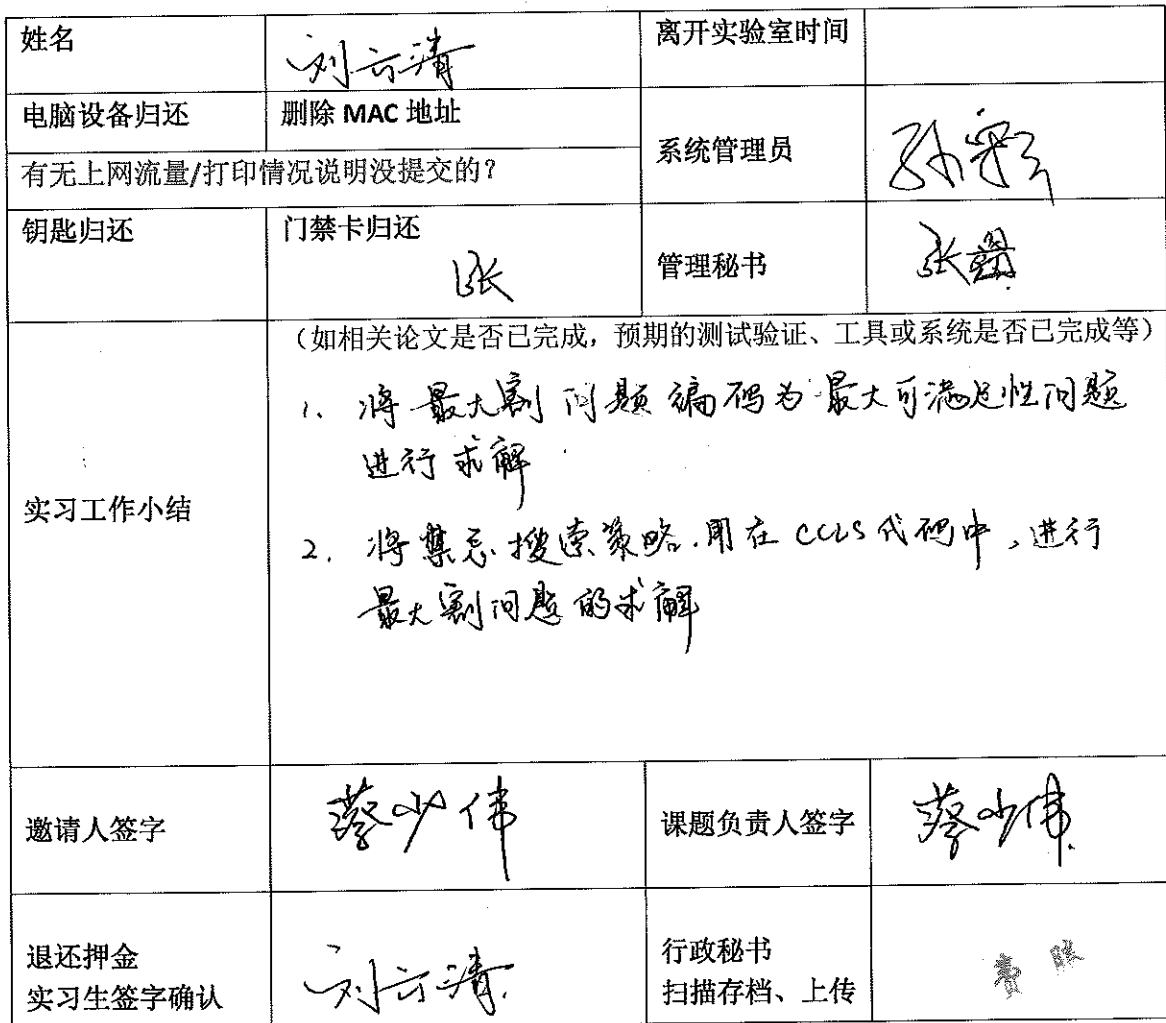 姓名 刘云清 离开实验室时间
电脑设备归还 删除 MAC 地址
系统管理员
有无上网流量/打印情况说明没提交的？
钥匙归还 门禁卡归还
张
管理秘书 张
（如相关论文是否已完成，预期的测试验证、工具或系统是否已完成等）
1. 将最大割问题编码为最大可满足性问题
进行求解
实习工作小结
2. 将禁忌搜索策略用在 CCLS 代码中，进行
最大割问题的求解
邀请人签字 蔡少伟 课题负责人签字 蔡少伟
退还押金 行政秘书
实习生签字确认 刘云清 扫描存档、上传